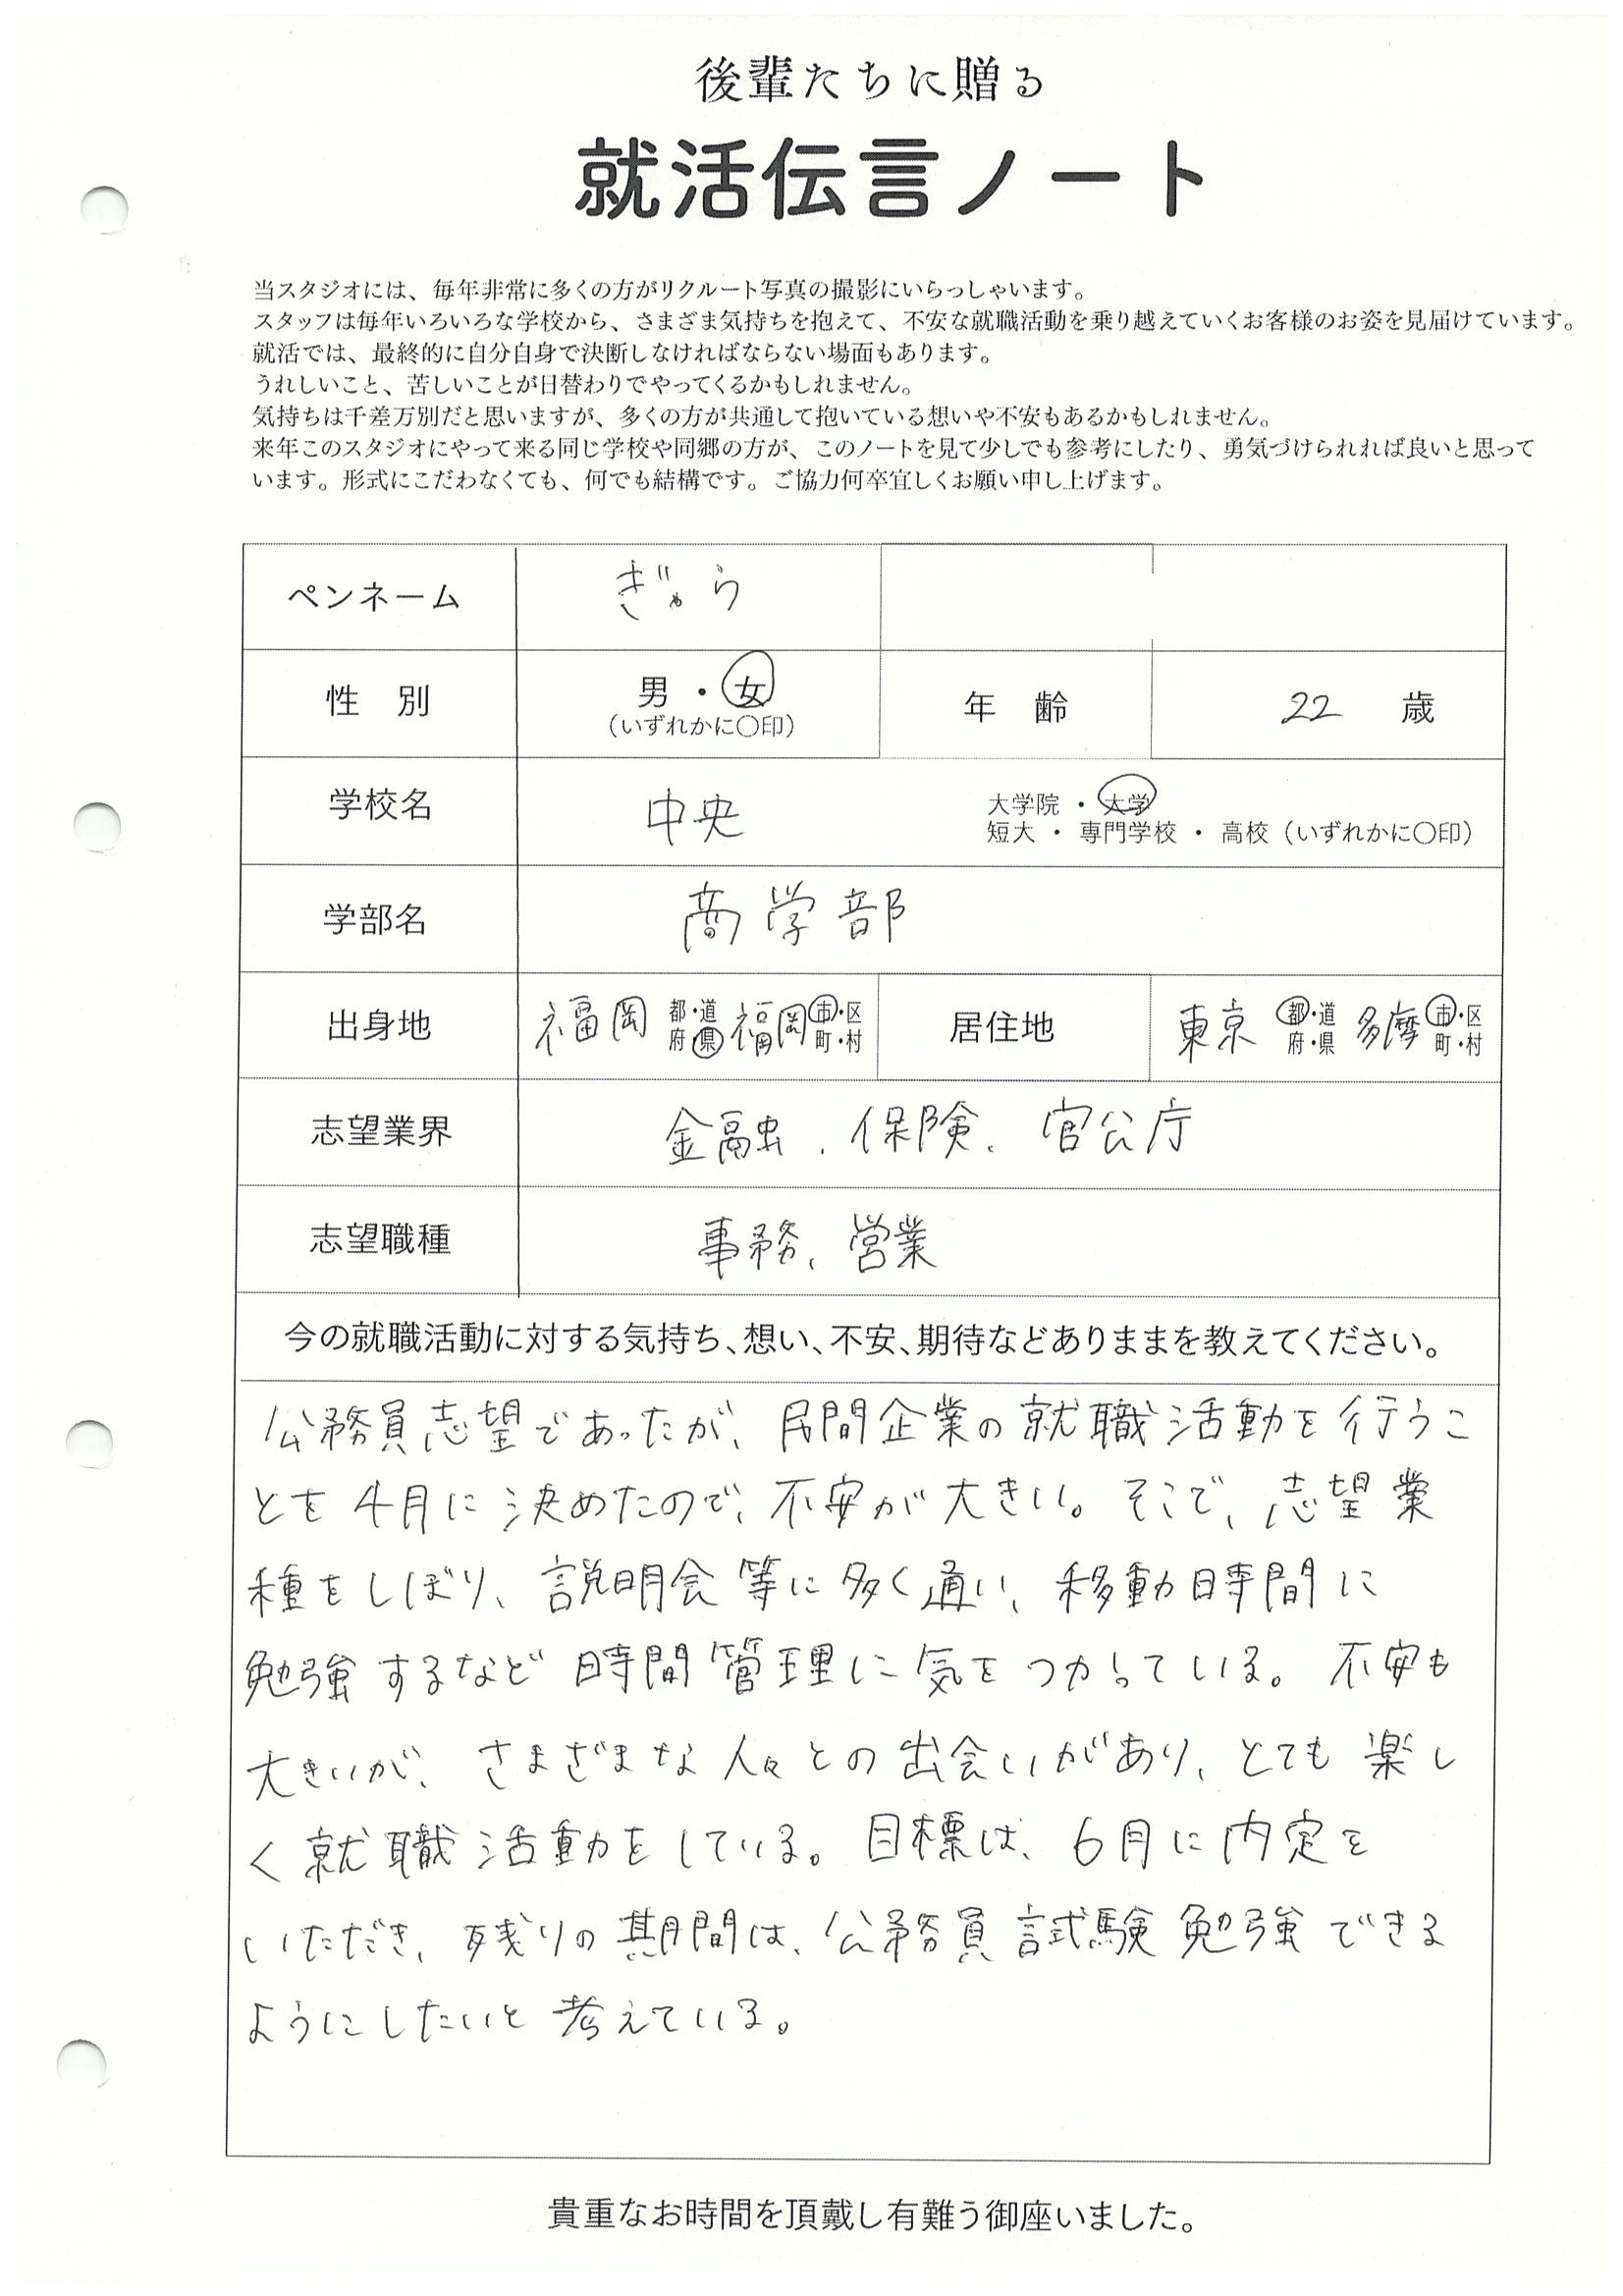 後輩たちに贈る
就活伝言ノート
当スタジオには、毎年非常に多くの方がリクルート写真の撮影にいらっしゃいます。
スタッフは毎年いろいろな学校から、さまざま気持ちを抱えて、不安な就職活動を乗り越えていくお客様のお姿を見届けています。
就活では、最終的に自分自身で決断しなければならない場面もあります。
うれしいこと、苦しいことが日替わりでやってくるかもしれません。
気持ちは千差万別だと思いますが、多くの方が共通して抱いている想いや不安もあるかもしれません。
来年このスタジオにやって来る同じ学校や同郷の方が、このノートを見て少しでも参考にしたり、勇気づけられれば良いと思って
います。形式にこだわなくても、何でも結構です。ご協力何卒宜しくお願い申し上げます。
ペンネーム ぎゃら
性 別 男・女 年 齢 22 歳
(いずれかに〇印)
学校名 中央 大学院・大学
短大・専門学校・高校(いずれかに〇印)
学部名 商学部
出身地 福岡 都・道府・県 福岡 市・区町・村 居住地 東京 都・道府・県 多摩 市・区町・村
志望業界 金融、保険、官公庁
志望職種 事務、営業
今の就職活動に対する気持ち、想い、不安、期待などありままを教えてください。
公務員志望であったが、民間企業の就職活動を行うこ
とを4月に決めたので、不安が大きい。そこで、志望業
種をしぼり、説明会等に多く通い、移動時間に
勉強するなど時間管理に気をつかっている。不安も
大きいが、さまざまな人々との出会いがあり、とても楽し
く就職活動をしている。目標は、6月に内定を
いただき、残りの期間は、公務員試験勉強できる
ようにしたいと考えている。
貴重なお時間を頂戴し有難う御座いました。